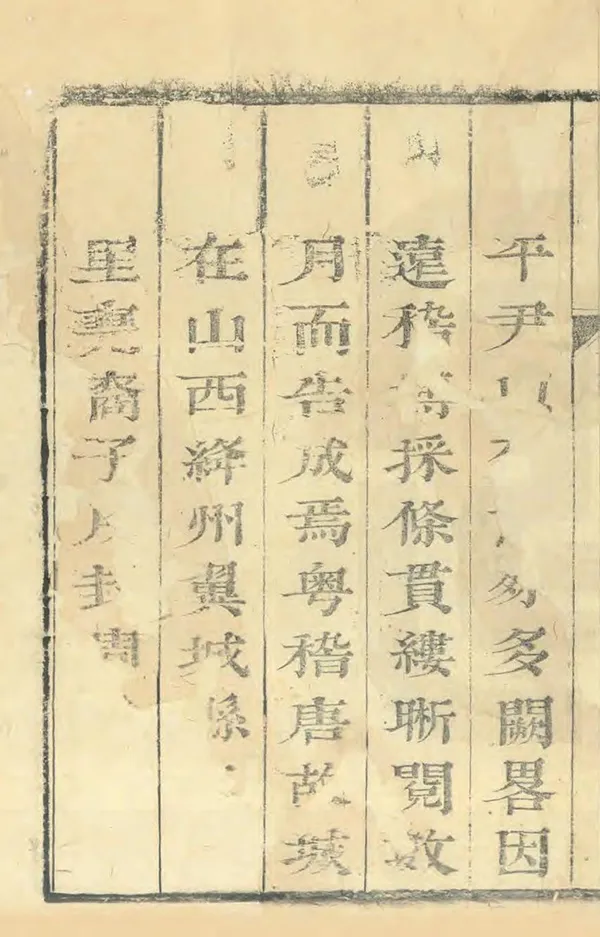 平尹多闕畧因
遠稽採條貫縷晰閱数
月而告成焉粤稽唐故城
在山西絳州翼城係
里堯裔子封